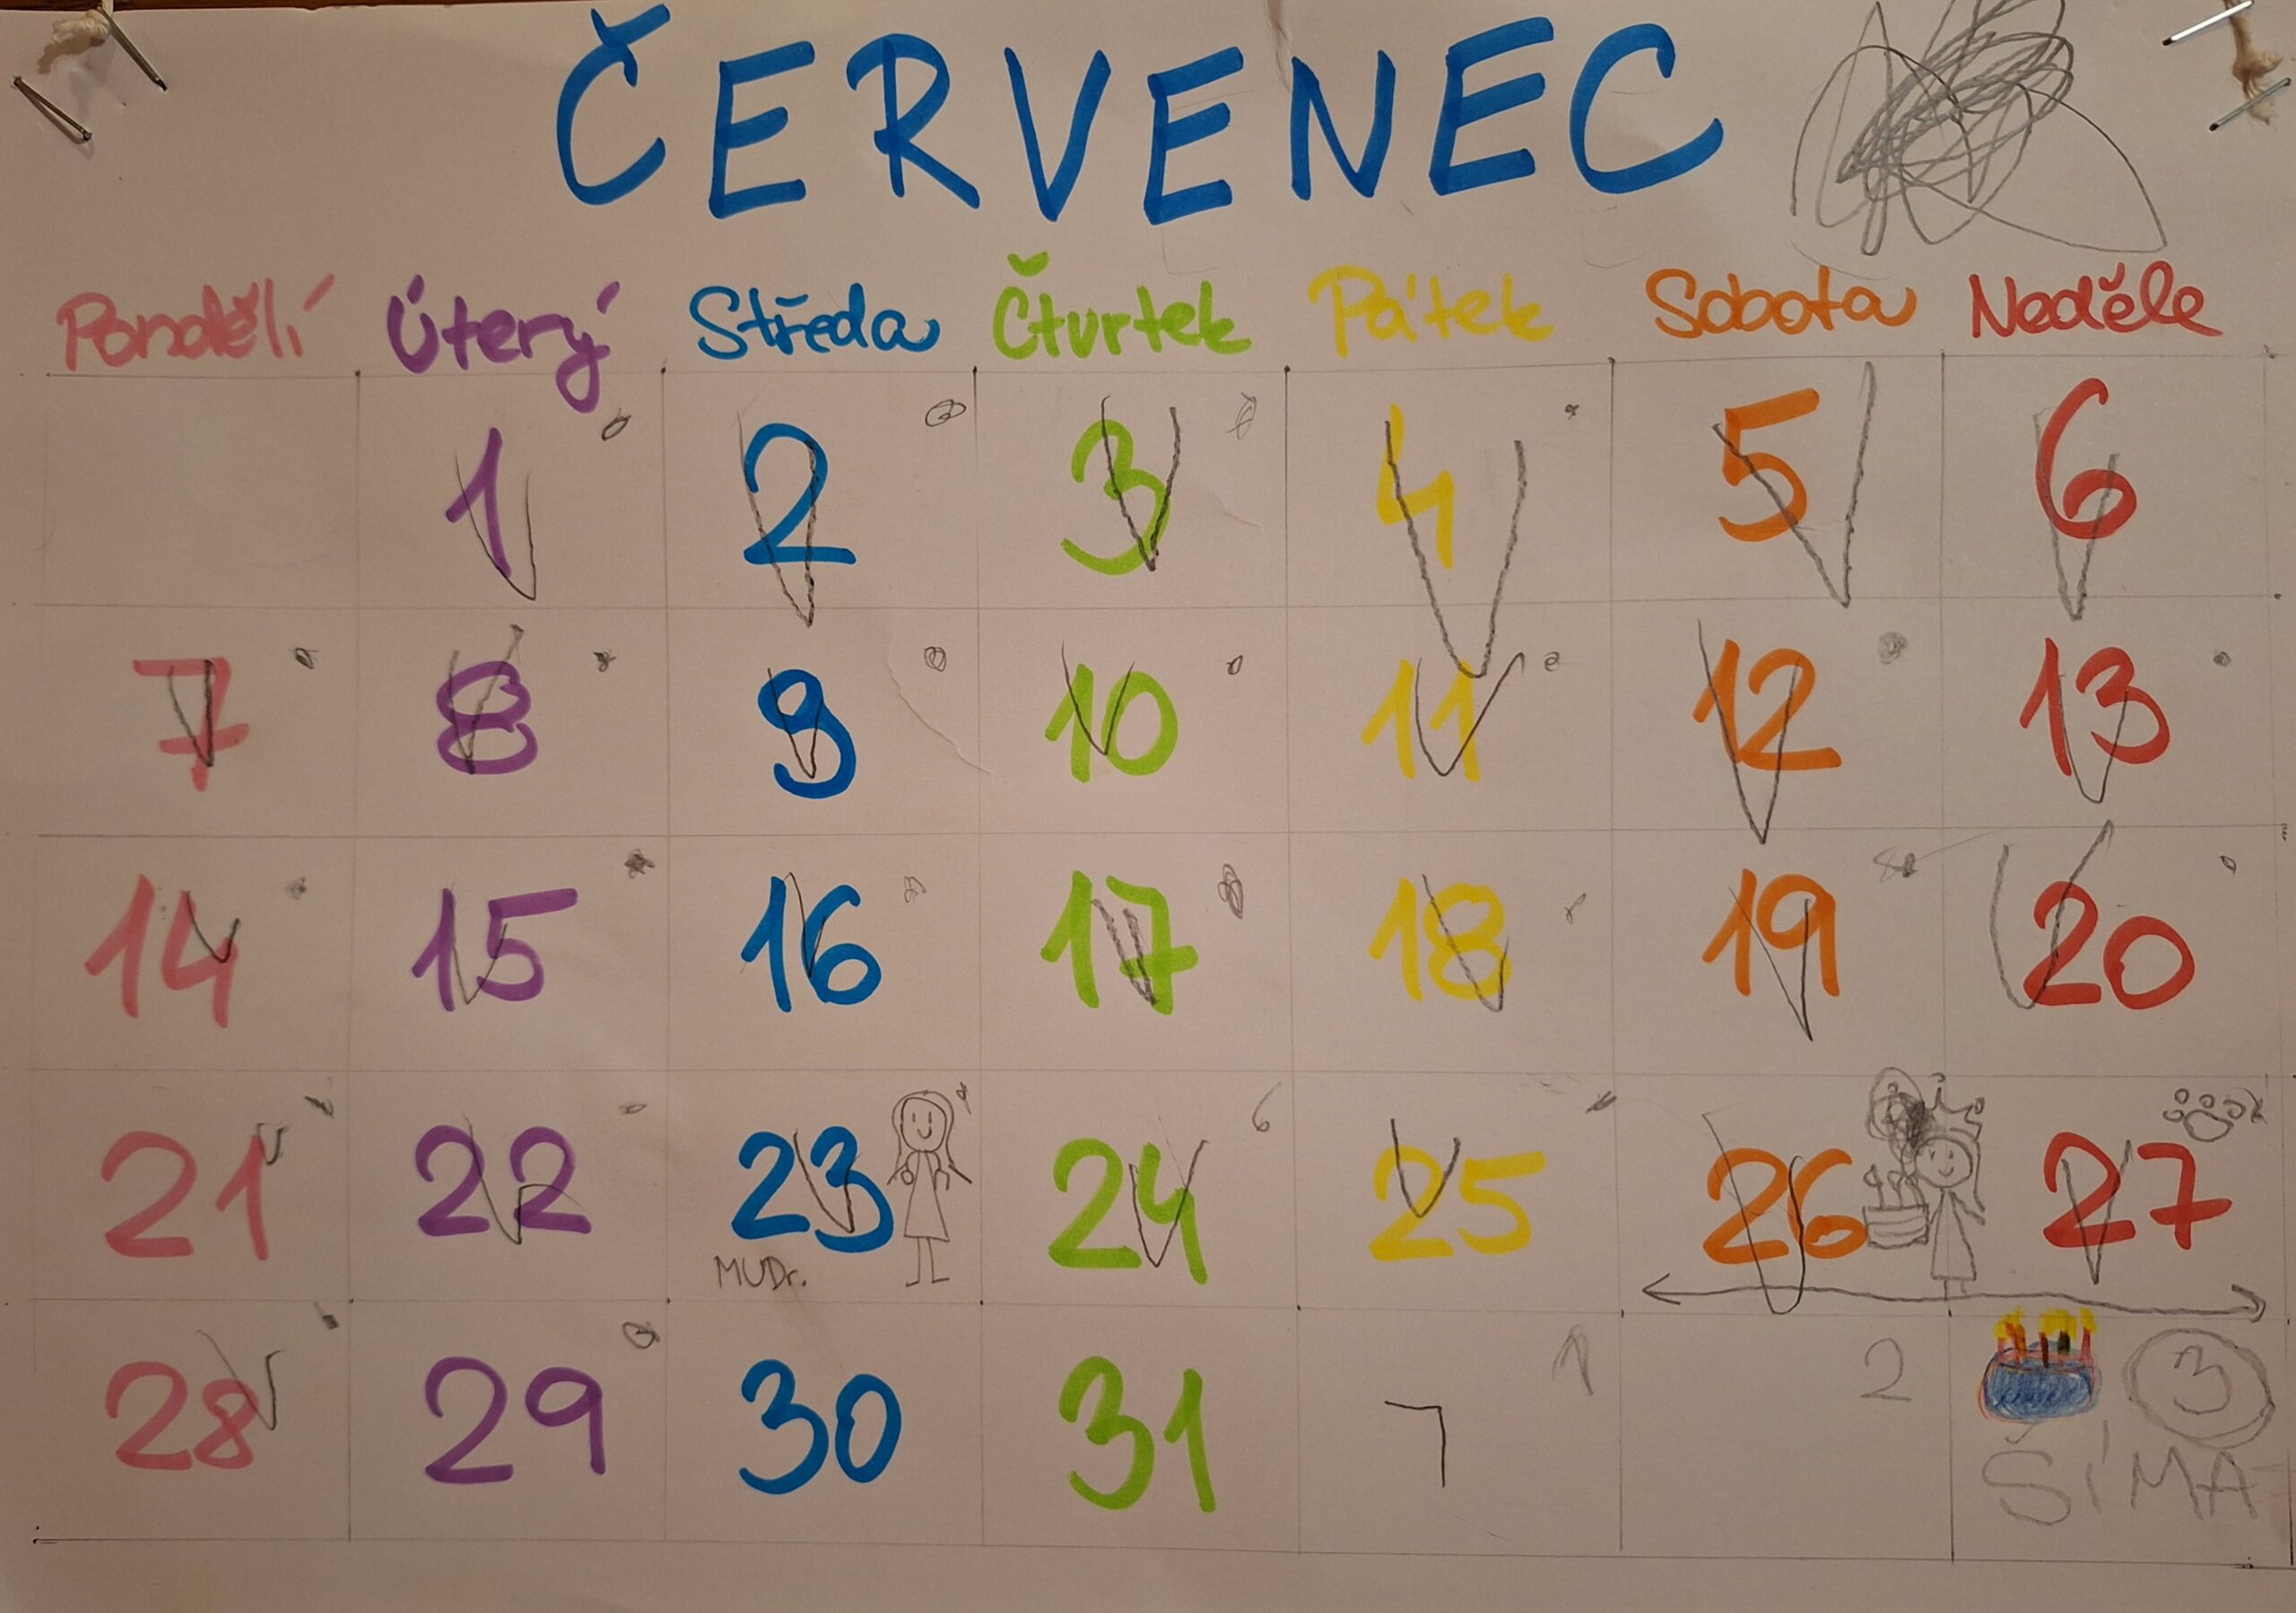 ČERVENEC
Pondělí Úterý Středa Čtvrtek Pátek Sobota Neděle
1 2 3 4 5 6
7 8 9 10 11 12 13
14 15 16 17 18 19 20
21 22 23 24 25 26 27
MUDr.
28 29 30 31 1 2 3
ŠÍMA